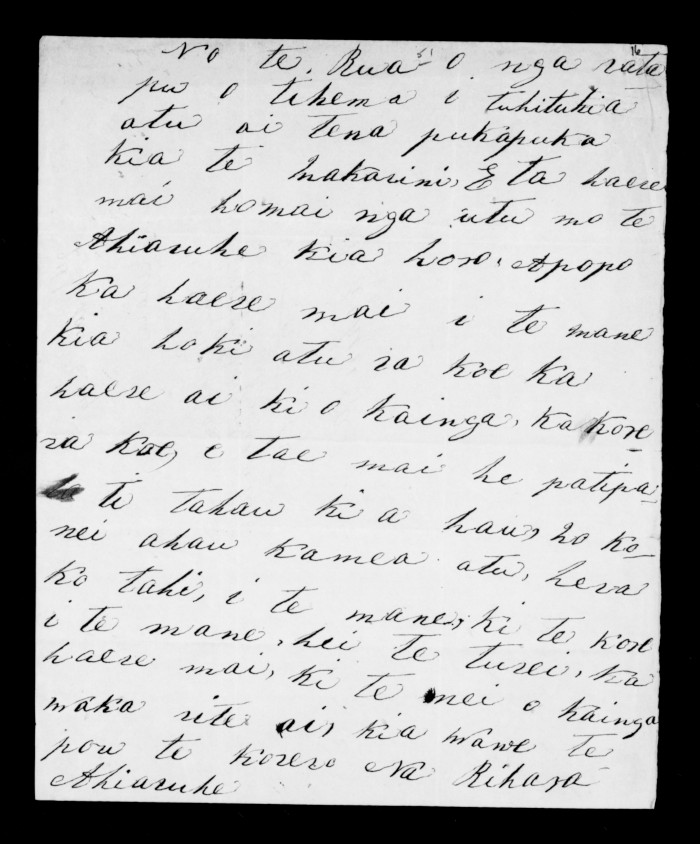 16
No te Rua o nga rata
pu o tihema i tuhituhia
atu ai tena pukapuka
kia te Makarini, E ta haere
mai homai nga utu mo te
Ahiaruhe kia horo. Apopo
ka haere mai i te mane
kia hoki atu ra koe ka
haere ai ki o kainga, ka kore
ra koe, e tae mai he patipa
ti tahau ki a hau, ho ko-
nei ahau kamea atu, hera
ko tahi, i te mane, ki te kore
i te mane, hei te turei, ka
haere mai, ki te mei o kainga
maka rite ai, kia wawe te
pou te korero Na Rihara
Ahiaruhe